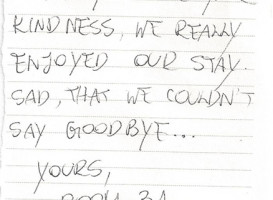 KINDNESS, WE REALLY
ENJOYED OUR STAY.
SAD, THAT WE COULDN'T
SAY GOODBYE...
YOURS,
ROOM 31